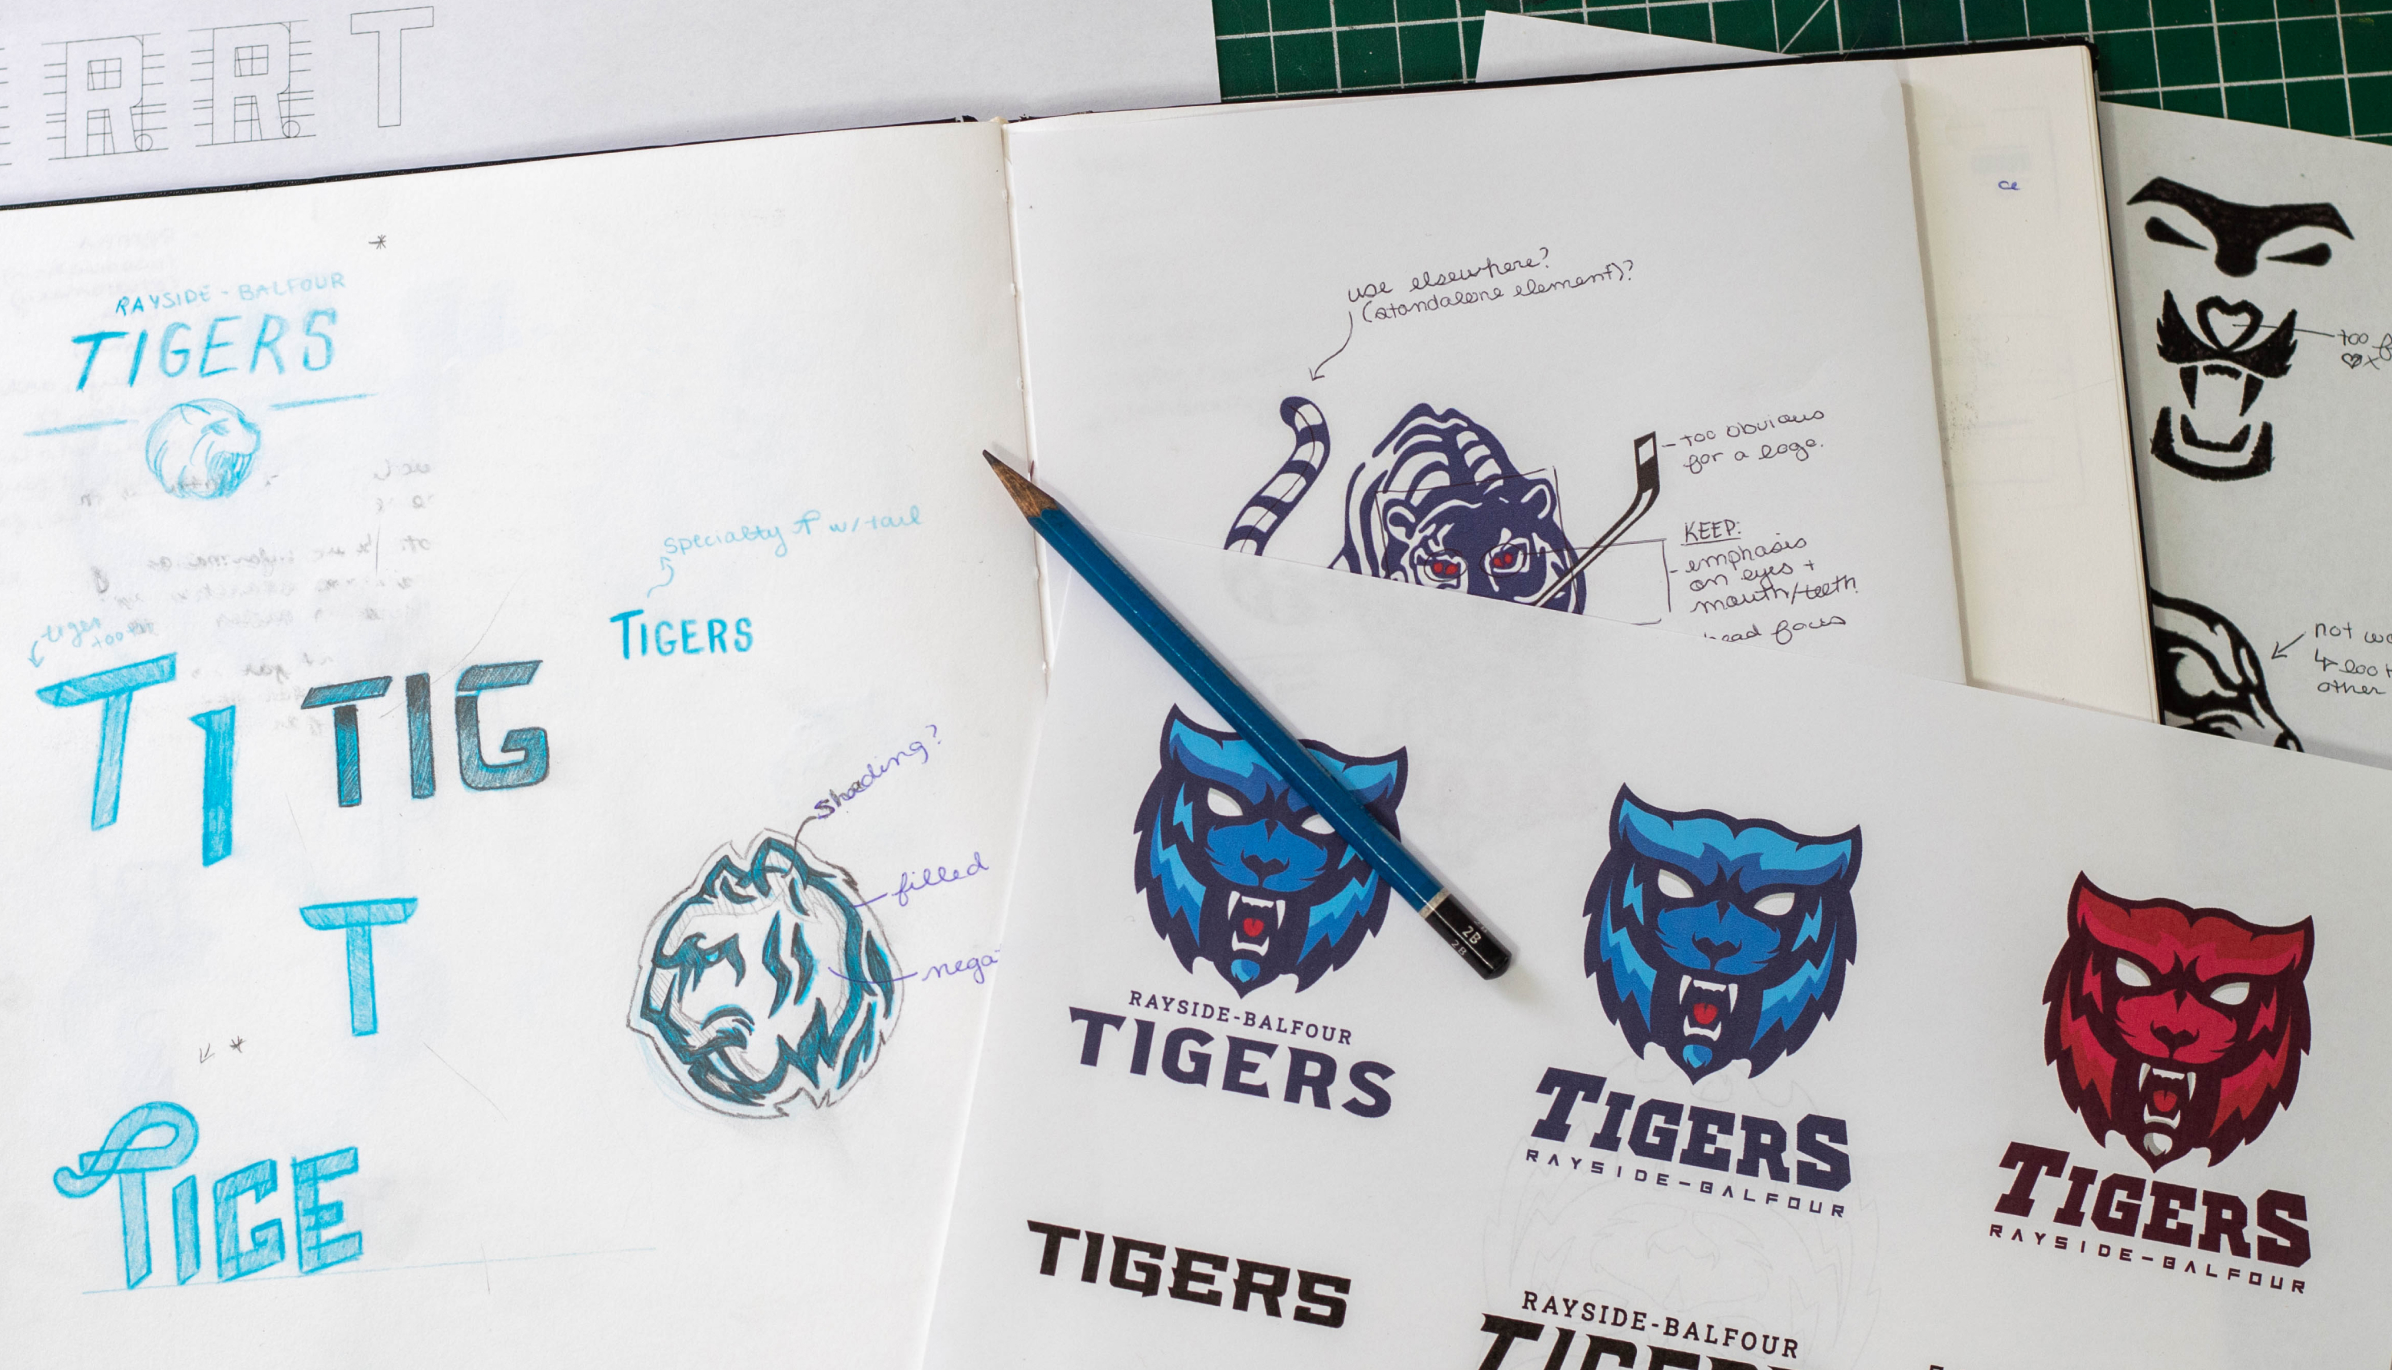 R R T
*
RAYSIDE - BALFOUR
TIGERS
specialty T w/ tail
TIGERS
tiger
too
TI
TIG
T
*
TIGE
shading?
filled
nega
use elsewhere?
(standalone element)?
too obvious
for a logo.
KEEP:
- emphasis
on eyes +
mouth/teeth.
head faces
ce
too
not wo
other
2B
2B
RAYSIDE-BALFOUR
TIGERS
TIGERS
RAYSIDE-BALFOUR
TIGERS
RAYSIDE-BALFOUR
TIGERS
RAYSIDE-BALFOUR
TIGER